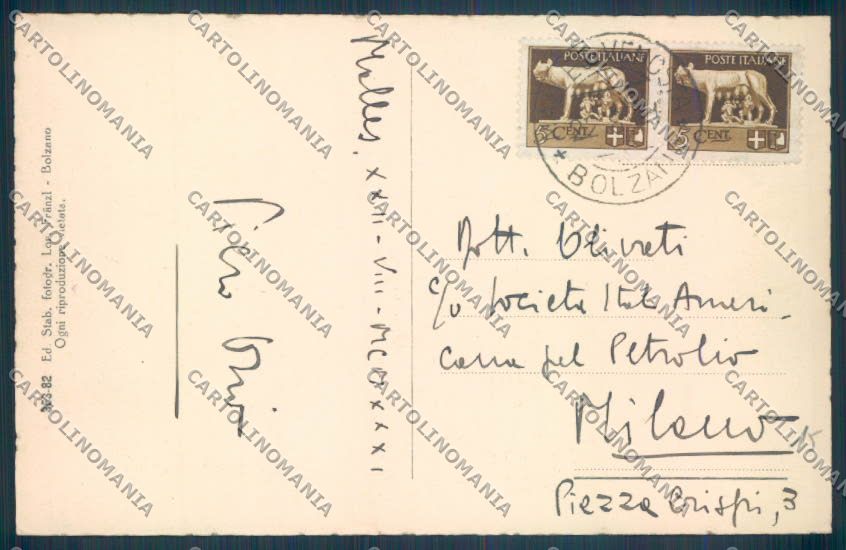 Malles, XXII - VIII - MCMXXXI
Piero
393-82 Ed Stab. fotogr. Lor. Fränzl - Bolzano
Ogni riproduzione vietata.
POSTE ITALIANE
5 CENT.
POSTE ITALIANE
5 CENT.
VENOSTA
* BOLZANO
Dott. Oliveti
c/o Società Italo Ameri-
cana pel Petrolio
Milano
Piazza Crispi, 3
CARTOLINOMANIA